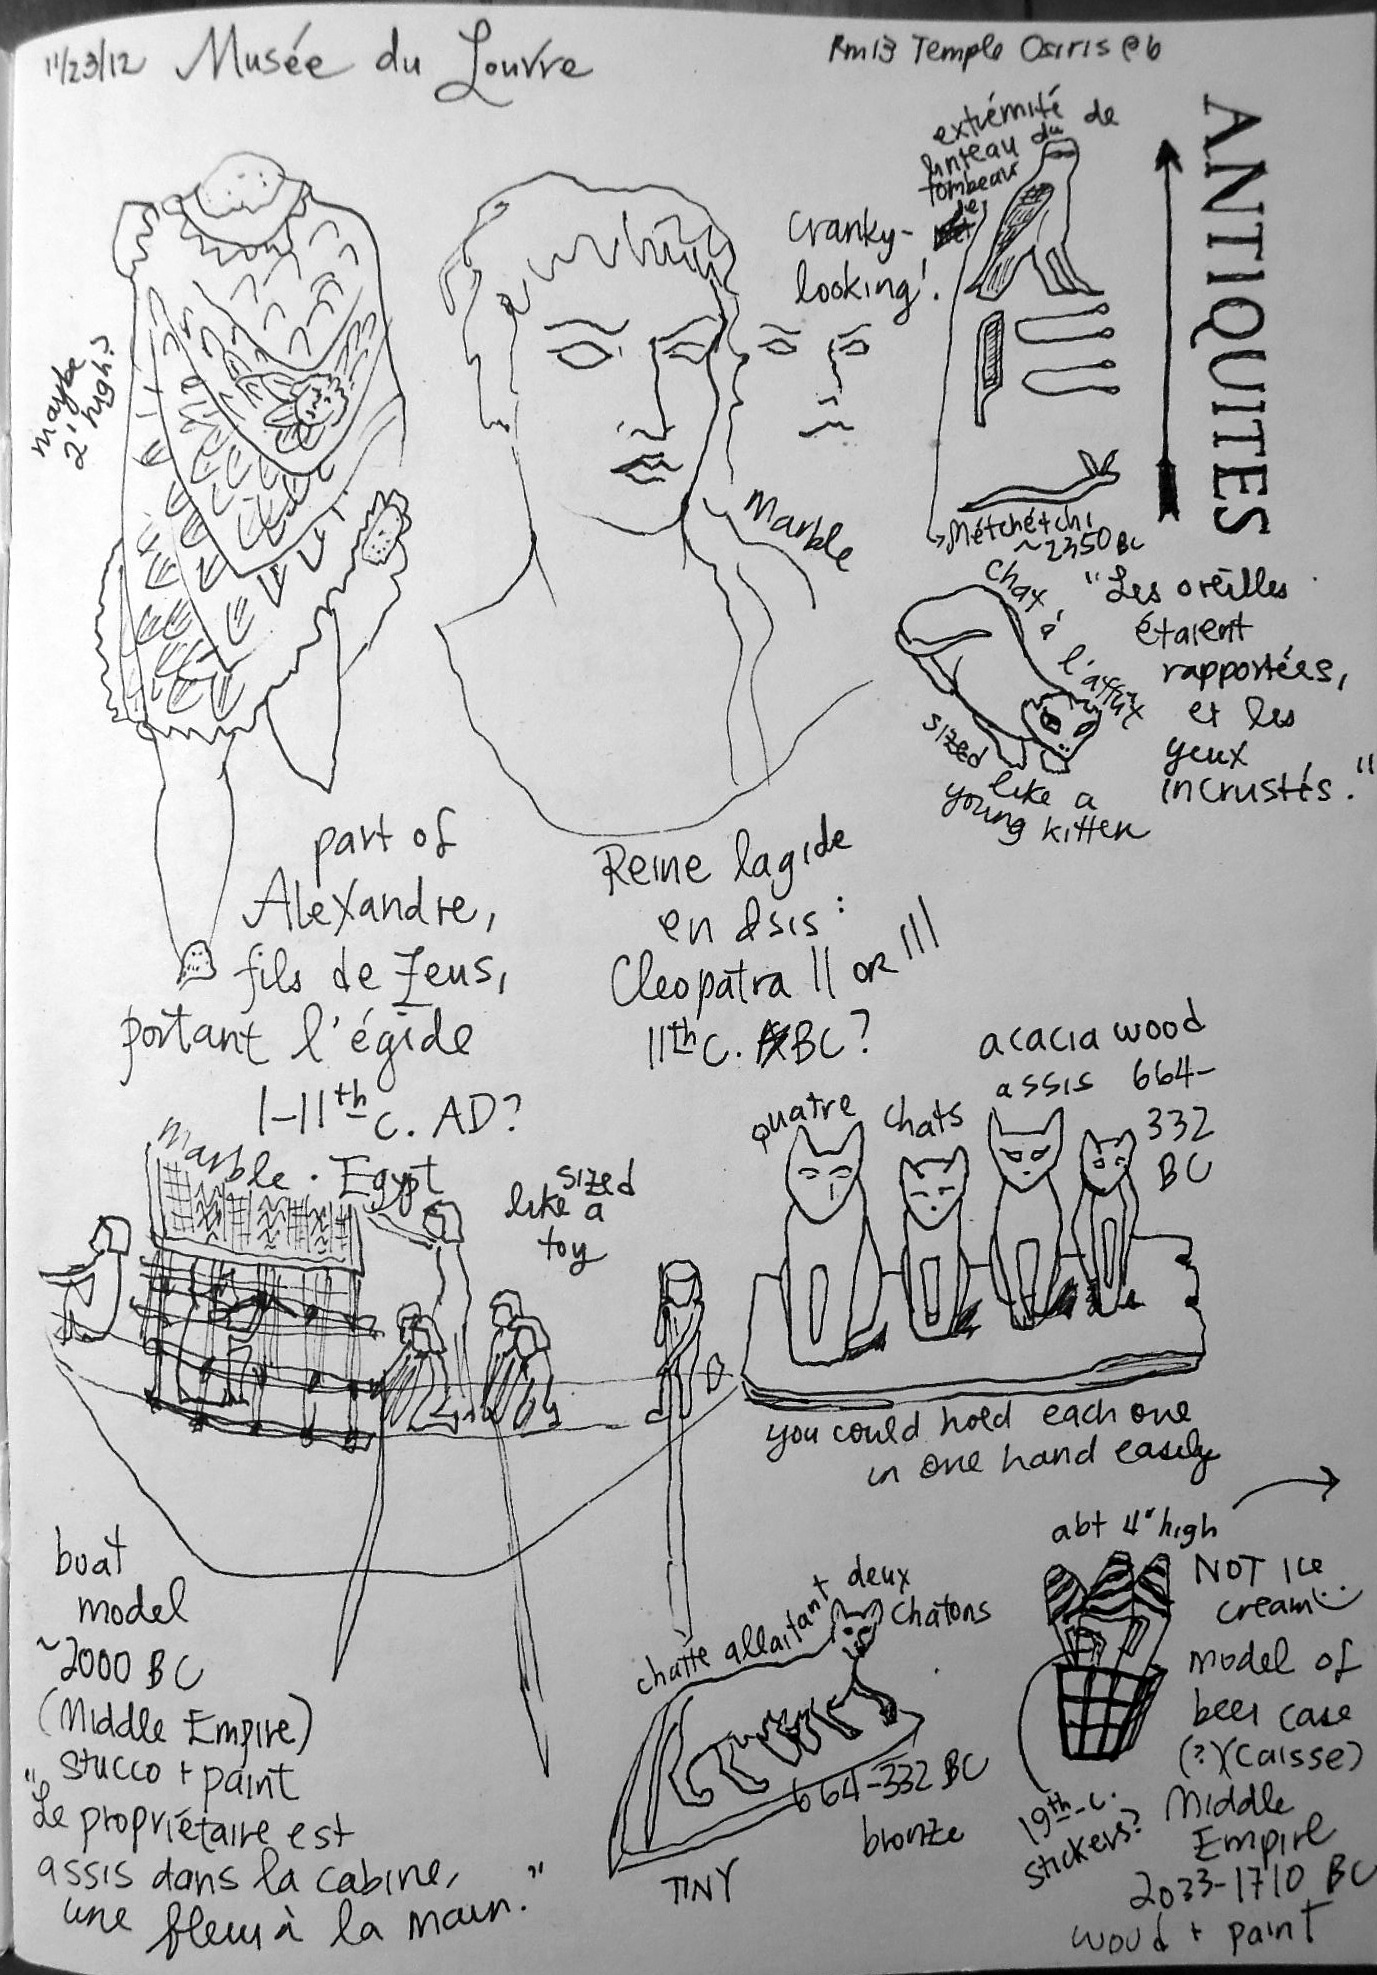 11/23/12 Musée du Louvre
Rm13 Temple Osiris @ 6
ANTIQUITES
extrémité de
linteau du
tombeau
de
Métchétchi
~2350 BC
cranky-
looking!
maybe
2' high?
Marble
chat à l'affût
sized like a
young kitten
"Les oreilles
étaient
rapportées,
et les
yeux
incrustés."
part of
Alexandre,
fils de Zeus,
portant l'égide
I-IIth c. AD?
marble · Egypt
Reine lagide
en Isis:
Cleopatra II or III
IIth c. BC?
acacia wood
quatre chats assis 664-
332
BC
you could hold each one
in one hand easily
sized
like a
toy
boat
model
~2000 BC
(Middle Empire)
stucco + paint
"Le propriétaire est
assis dans la cabine,
une fleur à la main."
chatte allaitant + deux
chatons
664-332 BC
bronze
TINY
abt 4" high
NOT ice
cream
model of
beer case
(?) (caisse)
Middle
Empire
2033-1710 BC
wood + paint
19th-c.
stickers?